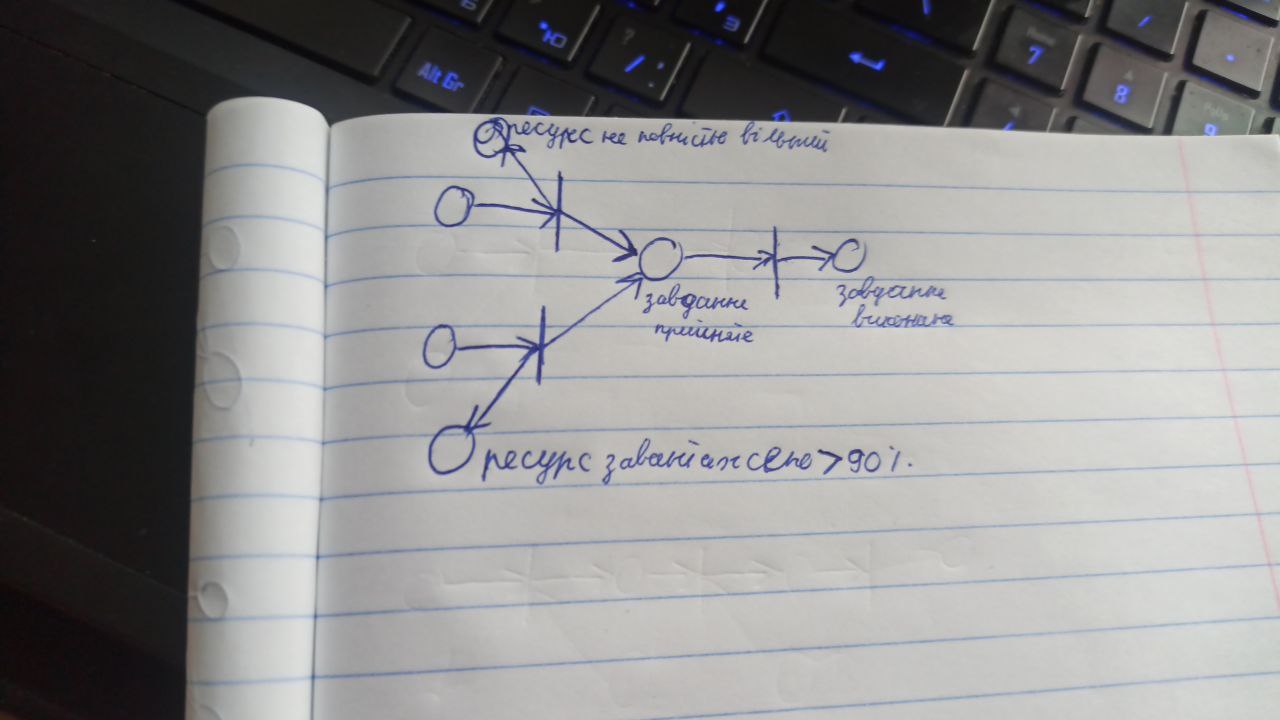 Alt Gr
Ю
7
8
9
ресурс не повністю вільний
завдання
прийняте
завдання
виконана
ресурс завантажено >90%.